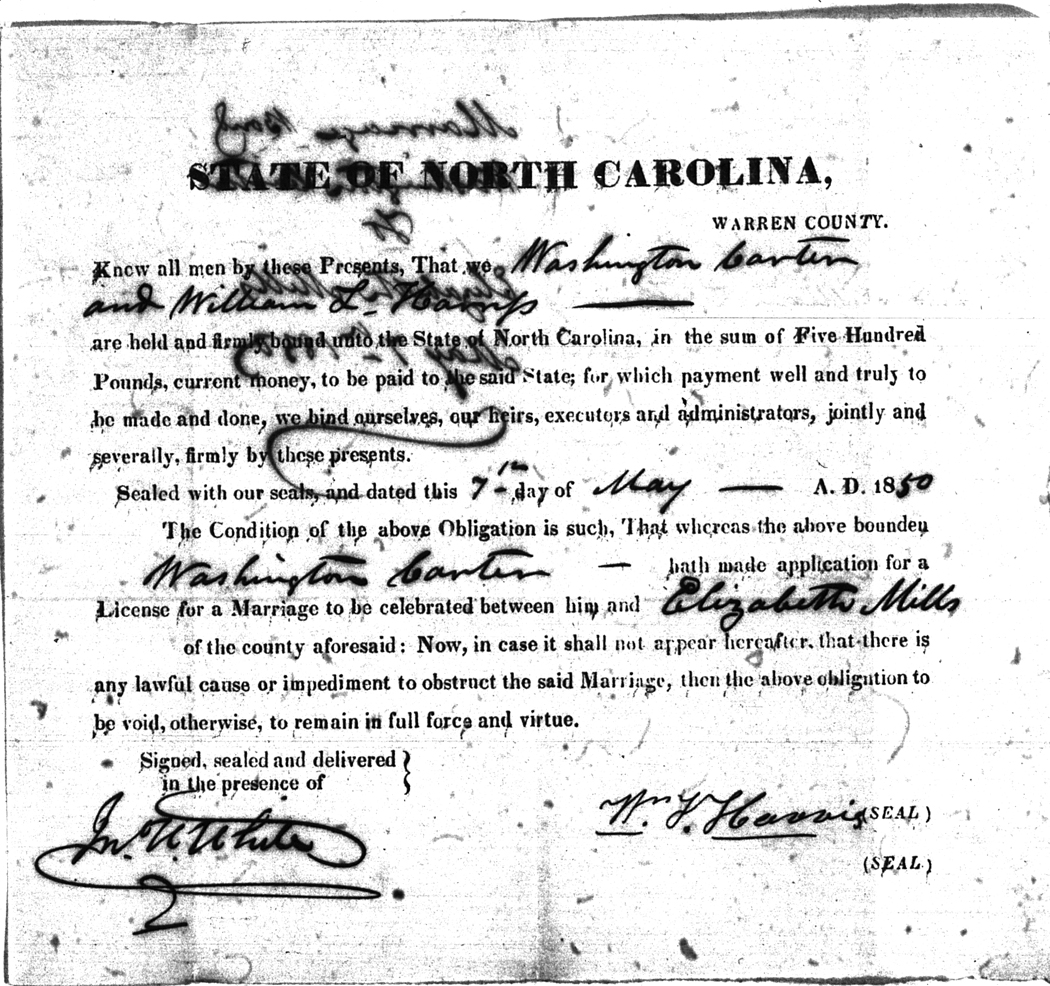 STATE OF NORTH CAROLINA,
WARREN COUNTY.
Know all men by these Presents, That we, Washington Carter
and William L. Harriss
are held and firmly bound unto the State of North Carolina, in the sum of Five Hundred
Pounds, current money, to be paid to the said State; for which payment well and truly to
be made and done, we bind ourselves, our heirs, executors and administrators, jointly and
severally, firmly by these presents.
Sealed with our seals, and dated this 7th day of May — A. D. 1850
The Condition of the above Obligation is such, That whereas the above bounden
Washington Carter — hath made application for a
License for a Marriage to be celebrated between him and Elizabeth Mills
of the county aforesaid: Now, in case it shall not appear hereafter, that there is
any lawful cause or impediment to obstruct the said Marriage, then the above obligation to
be void, otherwise, to remain in full force and virtue.
Signed, sealed and delivered
in the presence of
Jno. W. White
Wm. L. Harris (SEAL)
(SEAL)